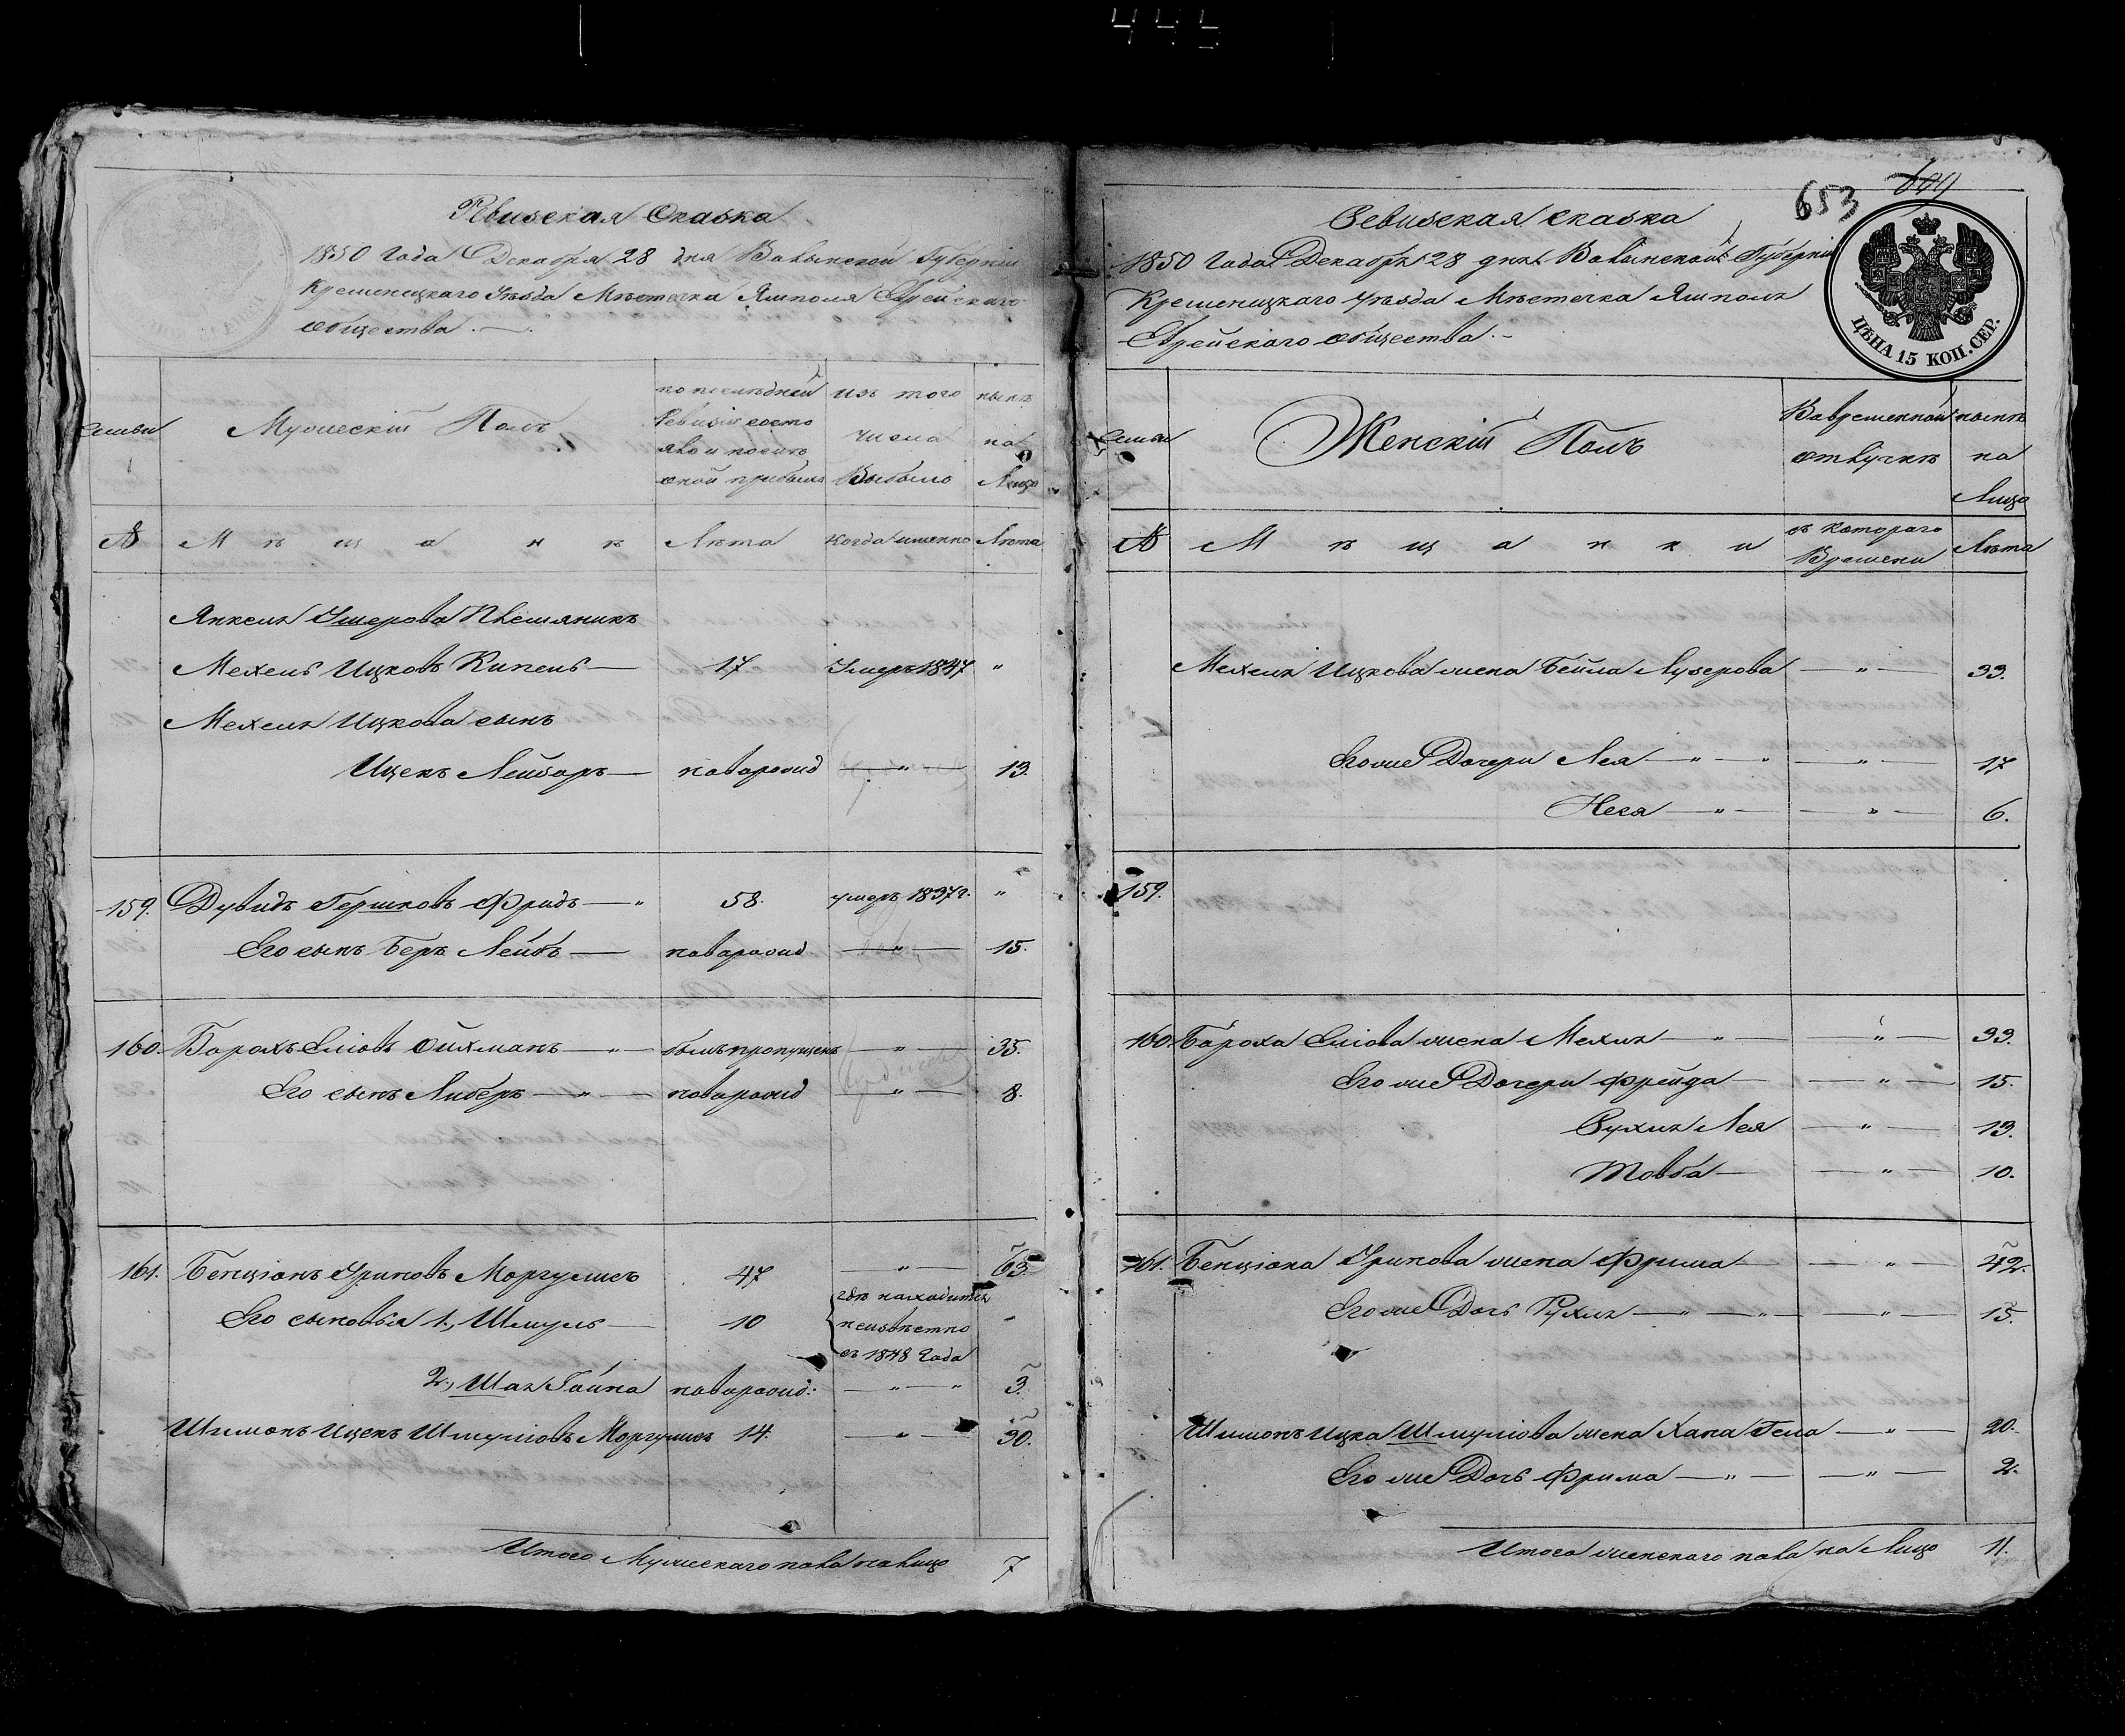 445
Ревизская Сказка
1850 Года Декабря 28 дня Волынской Губерніи
Кременецкаго Уѣзда Мѣстечка Ямполя Еврейскаго
общества.
Семьи
Мужескій Полъ
по послѣдней
Ревизіи состо
яло и послѣ
оной прибыло
изъ того
числа
Выбыло
нынѣ
на
Лицо
№
Мѣщане
Лѣта
когда именно
Лѣта
Янкеля Ушерова
Мехель Ицковъ Кипенъ 17 Умеръ 1847 "
Мехеля Ицкова сынъ
Ицекъ Лейзаръ новорожд " 13.
159. Дувидъ Гершковъ Фридъ " 58. умеръ 1837 г. "
Его сынъ Беръ Лейбъ новорожд " 15.
160. Борохъ Еліовъ Ойхманъ " былъ пропущенъ " 35.
Его сынъ Либеръ " новорожд " 8.
161. Бенціонъ Уриновъ Моргулисъ 47 " 63.
Его сыновья 1., Шмуль 10 гдѣ находится
неизвѣстно
съ 1848 Года
2., Шая Гайна новорожд: " " 3.
Шимонъ Ицекъ Шмуліовъ Моргулисъ 14. " 30.
Итого Мужескаго пола налицо 7
653
649
Ревизская сказка
1850 Года Декабря 28 дня Волынской Губерніи
Кременецкаго Уѣзда Мѣстечка Ямполя
Еврейскаго общества.
ЦѢНА 15 КОП. СЕР.
Семьи
Женскій Полъ
Вовременной
отлучкѣ
нынѣ
на
Лицо
№
Мѣщанки
съ котораго
Времени
Лѣта
Мехеля Ицкова жена Бейла Лузерова " 33.
Егоже Дочери Лея " " " 17
Неся " " 6.
159.
160. Бороха Еліова жена Мехля " " 33.
Его же Дочери Фрейда " 15.
Рухля Лея " 13.
Товба " 10.
161. Бенціона Уринова жена Фрима " 42.
Егоже Дочь Рухля " " " 15.
Шимонъ Ицка Шмуліова жена Хана Гела " 20.
Его же Дочь Фрима " " 2.
Итого женскаго пола на Лицо 11.